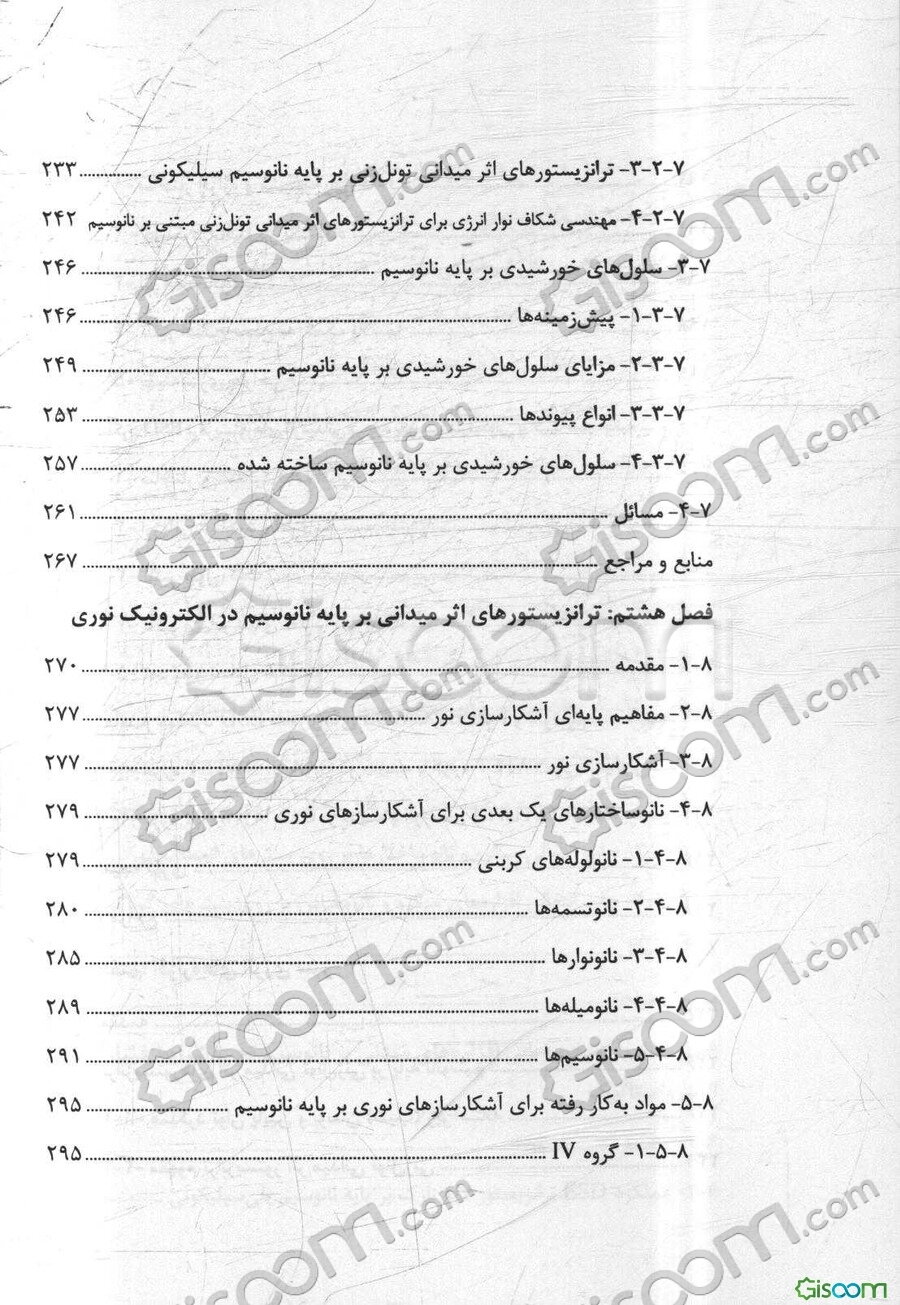 ۷-۲-۳- ترانزیستورهای اثر میدانی تونل‌زنی بر پایه نانوسیم سیلیکونی ............. ۲۳۳
۷-۲-۴- مهندسی شکاف نوار انرژی برای ترانزیستورهای اثر میدانی تونل‌زنی مبتنی بر نانوسیم ۲۴۲
۷-۳- سلول‌های خورشیدی بر پایه نانوسیم ............. ۲۴۶
۷-۳-۱- پیش‌زمینه‌ها ............. ۲۴۶
۷-۳-۲- مزایای سلول‌های خورشیدی بر پایه نانوسیم ............. ۲۴۹
۷-۳-۳- انواع پیوندها ............. ۲۵۳
۷-۳-۴- سلول‌های خورشیدی بر پایه نانوسیم ساخته شده ............. ۲۵۷
۷-۴- مسائل ............. ۲۶۱
منابع و مراجع ............. ۲۶۷
فصل هشتم: ترانزیستورهای اثر میدانی بر پایه نانوسیم در الکترونیک نوری
۸-۱- مقدمه ............. ۲۷۰
۸-۲- مفاهیم پایه‌ای آشکارسازی نور ............. ۲۷۷
۸-۳- آشکارسازی نور ............. ۲۷۷
۸-۴- نانوساختارهای یک بعدی برای آشکارسازهای نوری ............. ۲۷۹
۸-۴-۱- نانولوله‌های کربنی ............. ۲۷۹
۸-۴-۲- نانوتسمه‌ها ............. ۲۸۰
۸-۴-۳- نانونوارها ............. ۲۸۵
۸-۴-۴- نانومیله‌ها ............. ۲۸۹
۸-۴-۵- نانوسیم‌ها ............. ۲۹۱
۸-۵- مواد به‌کار رفته برای آشکارسازهای نوری بر پایه نانوسیم ............. ۲۹۵
۸-۵-۱- گروه IV ............. ۲۹۵
Gisoom.com
Gisoom